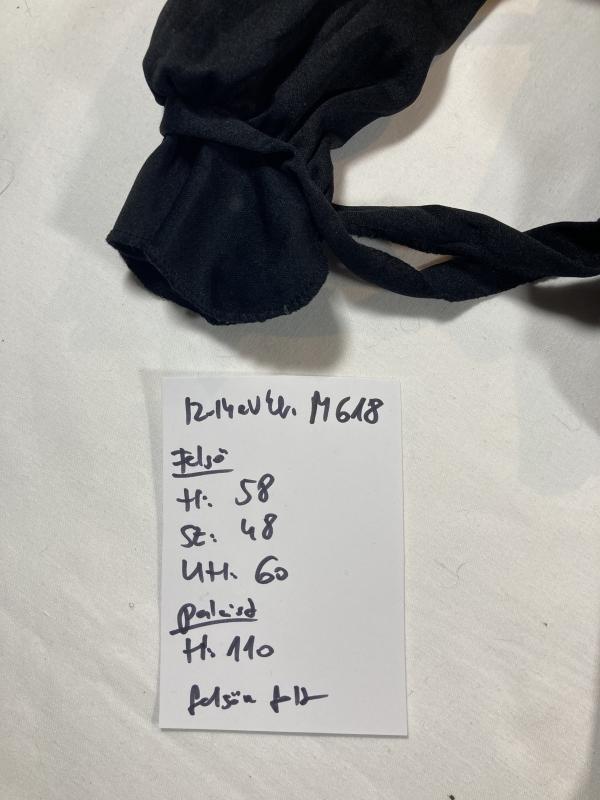 12-14 év kb. M618
Felső
H: 58
Sz: 48
UH: 60
palást
H: 110
felsőn folt